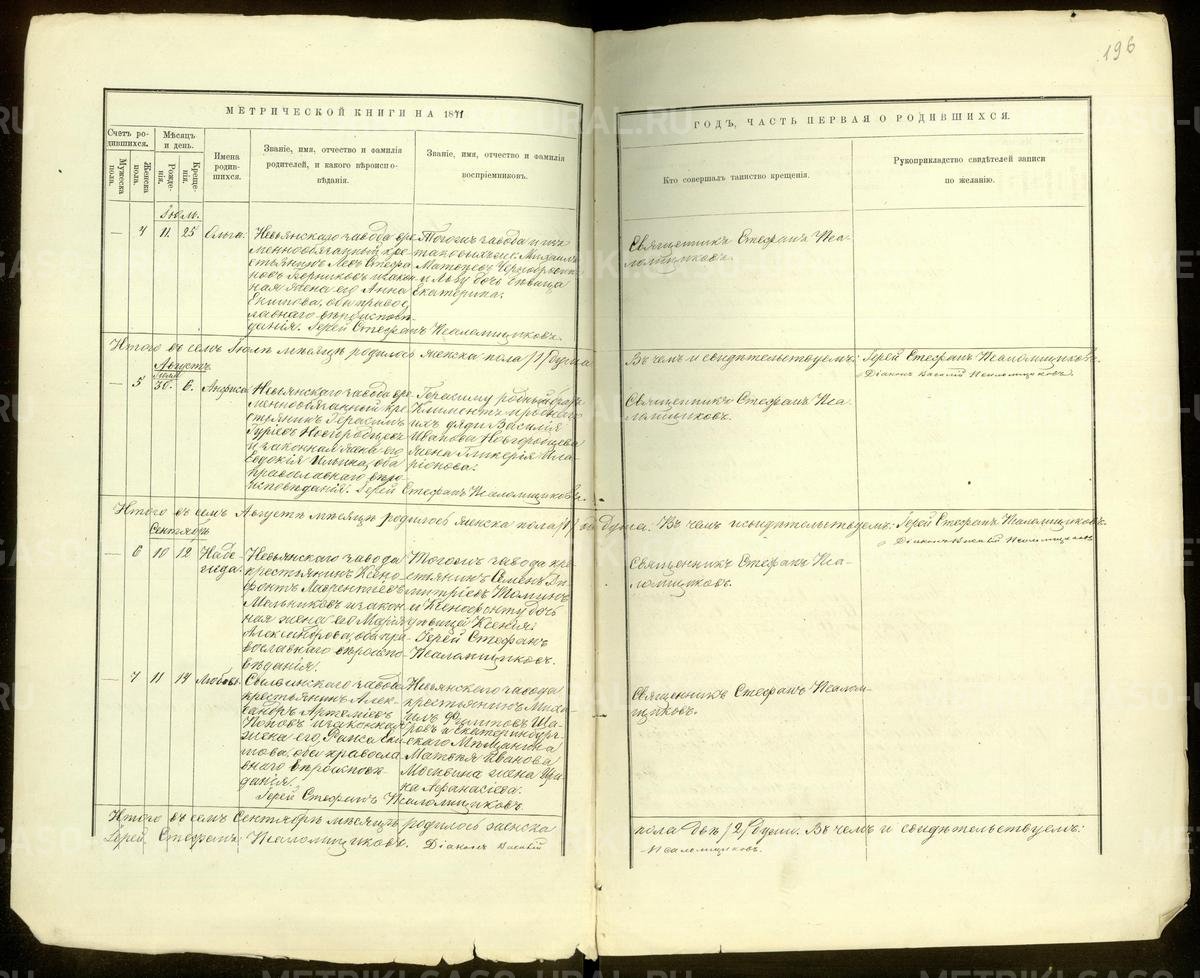 196
МЕТРИЧЕСКОЙ КНИГИ НА 1871
ГОДЪ, ЧАСТЬ ПЕРВАЯ О РОДИВШИХСЯ.
Счетъ ро-
дившихся.
Мужеска
пола.
Женска
пола.
Мѣсяцъ
и день.
Рожде-
нія.
Креще-
нія.
Имена
родив-
шихся.
Званіе, имя, отчество и фамилія
родителей, и какого вѣроиспо-
вѣданія.
Званіе, имя, отчество и фамилія
воспріемниковъ.
Кто совершалъ таинство крещенія.
Рукоприкладство свидѣтелей записи
по желанію.
Іюль.
— 4 11. 25 Ольга.
Невьянскаго завода вре-
меннообязанный кре-
стьянинъ Левъ
и закон-
ная жена его Анна
оба право-
славнаго вѣроисповѣ-
данія. Іерей Стефанъ Псаломщиковъ.
Тогожъ завода и изъ
Михаилъ
Матвѣевъ
и Льву дочь дѣвица
Екатерина.
Священникъ Стефанъ Пса-
ломщиковъ.
Итого въ семъ Іюлѣ мѣсяцѣ родилось женска пола
Въ чемъ и свидѣтельствуемъ: Іерей Стефанъ Псаломщиковъ.
Діаконъ Василій Псаломщиковъ.
Августъ
Іюля
— 5 30. 6. Анфиса
Невьянскаго завода вре-
меннообязанный кре-
стьянинъ Герасимъ
Гуріевъ Новгородцевъ
и законная жена его
Евдокія Ильина, оба
православнаго вѣро-
исповѣданія. Іерей Стефанъ Псаломщиковъ.
Герасиму родный братъ
Климонтъ и роднаго
ихъ дяди Василія
Иванова Новгородцева
жена Гликерія Ила-
ріонова.
Священникъ Стефанъ Пса-
ломщиковъ.
Итого въ семъ Августѣ мѣсяцѣ родилось женска пола /1/ душа. Въ чемъ и свидѣтельствуемъ: Іерей Стефанъ Псаломщиковъ.
Діаконъ Василій Псаломщиковъ
Сентябрь
— 6 10 12 Наде-
жда.
Невьянскаго завода
крестьянинъ Ксено-
фонтъ Лаврентіевъ
Мельниковъ и закон-
ная жена его Марія
Александрова, оба пра-
вославнаго вѣроиспо-
вѣданія.
Тогожъ завода кре-
стьянинъ Семенъ Ди-
митріевъ Томинъ
и Ксенофонту дочь
дѣвица Ксенія.
Іерей Стефанъ
Псаломщиковъ.
Священникъ Стефанъ Пса-
ломщиковъ.
— 7 11 14 Любовь.
завода
крестьянинъ Алек-
сандръ Артеміевъ
Поповъ и законная
жена его, Раиса
оба правосла-
внаго вѣроисповѣ-
данія.
Іерей Стефанъ Псаломщиковъ
Невьянскаго завода
крестьянинъ Миха-
илъ Филиповъ Ша-
ровъ и Екатеринбург-
скаго Мѣщанина
Матвѣя Иванова
Москвина жена Ири-
на Афанасіева.
Священникъ Стефанъ Псалом-
щиковъ.
Итого въ семъ Сентябрѣ мѣсяцѣ родилось женска пола двѣ /2/ души. Въ чемъ и свидѣтельствуемъ:
Іерей Стефанъ Псаломщиковъ. Діаконъ Василій Псаломщиковъ.
METRIKI-GASO-URAL.RU